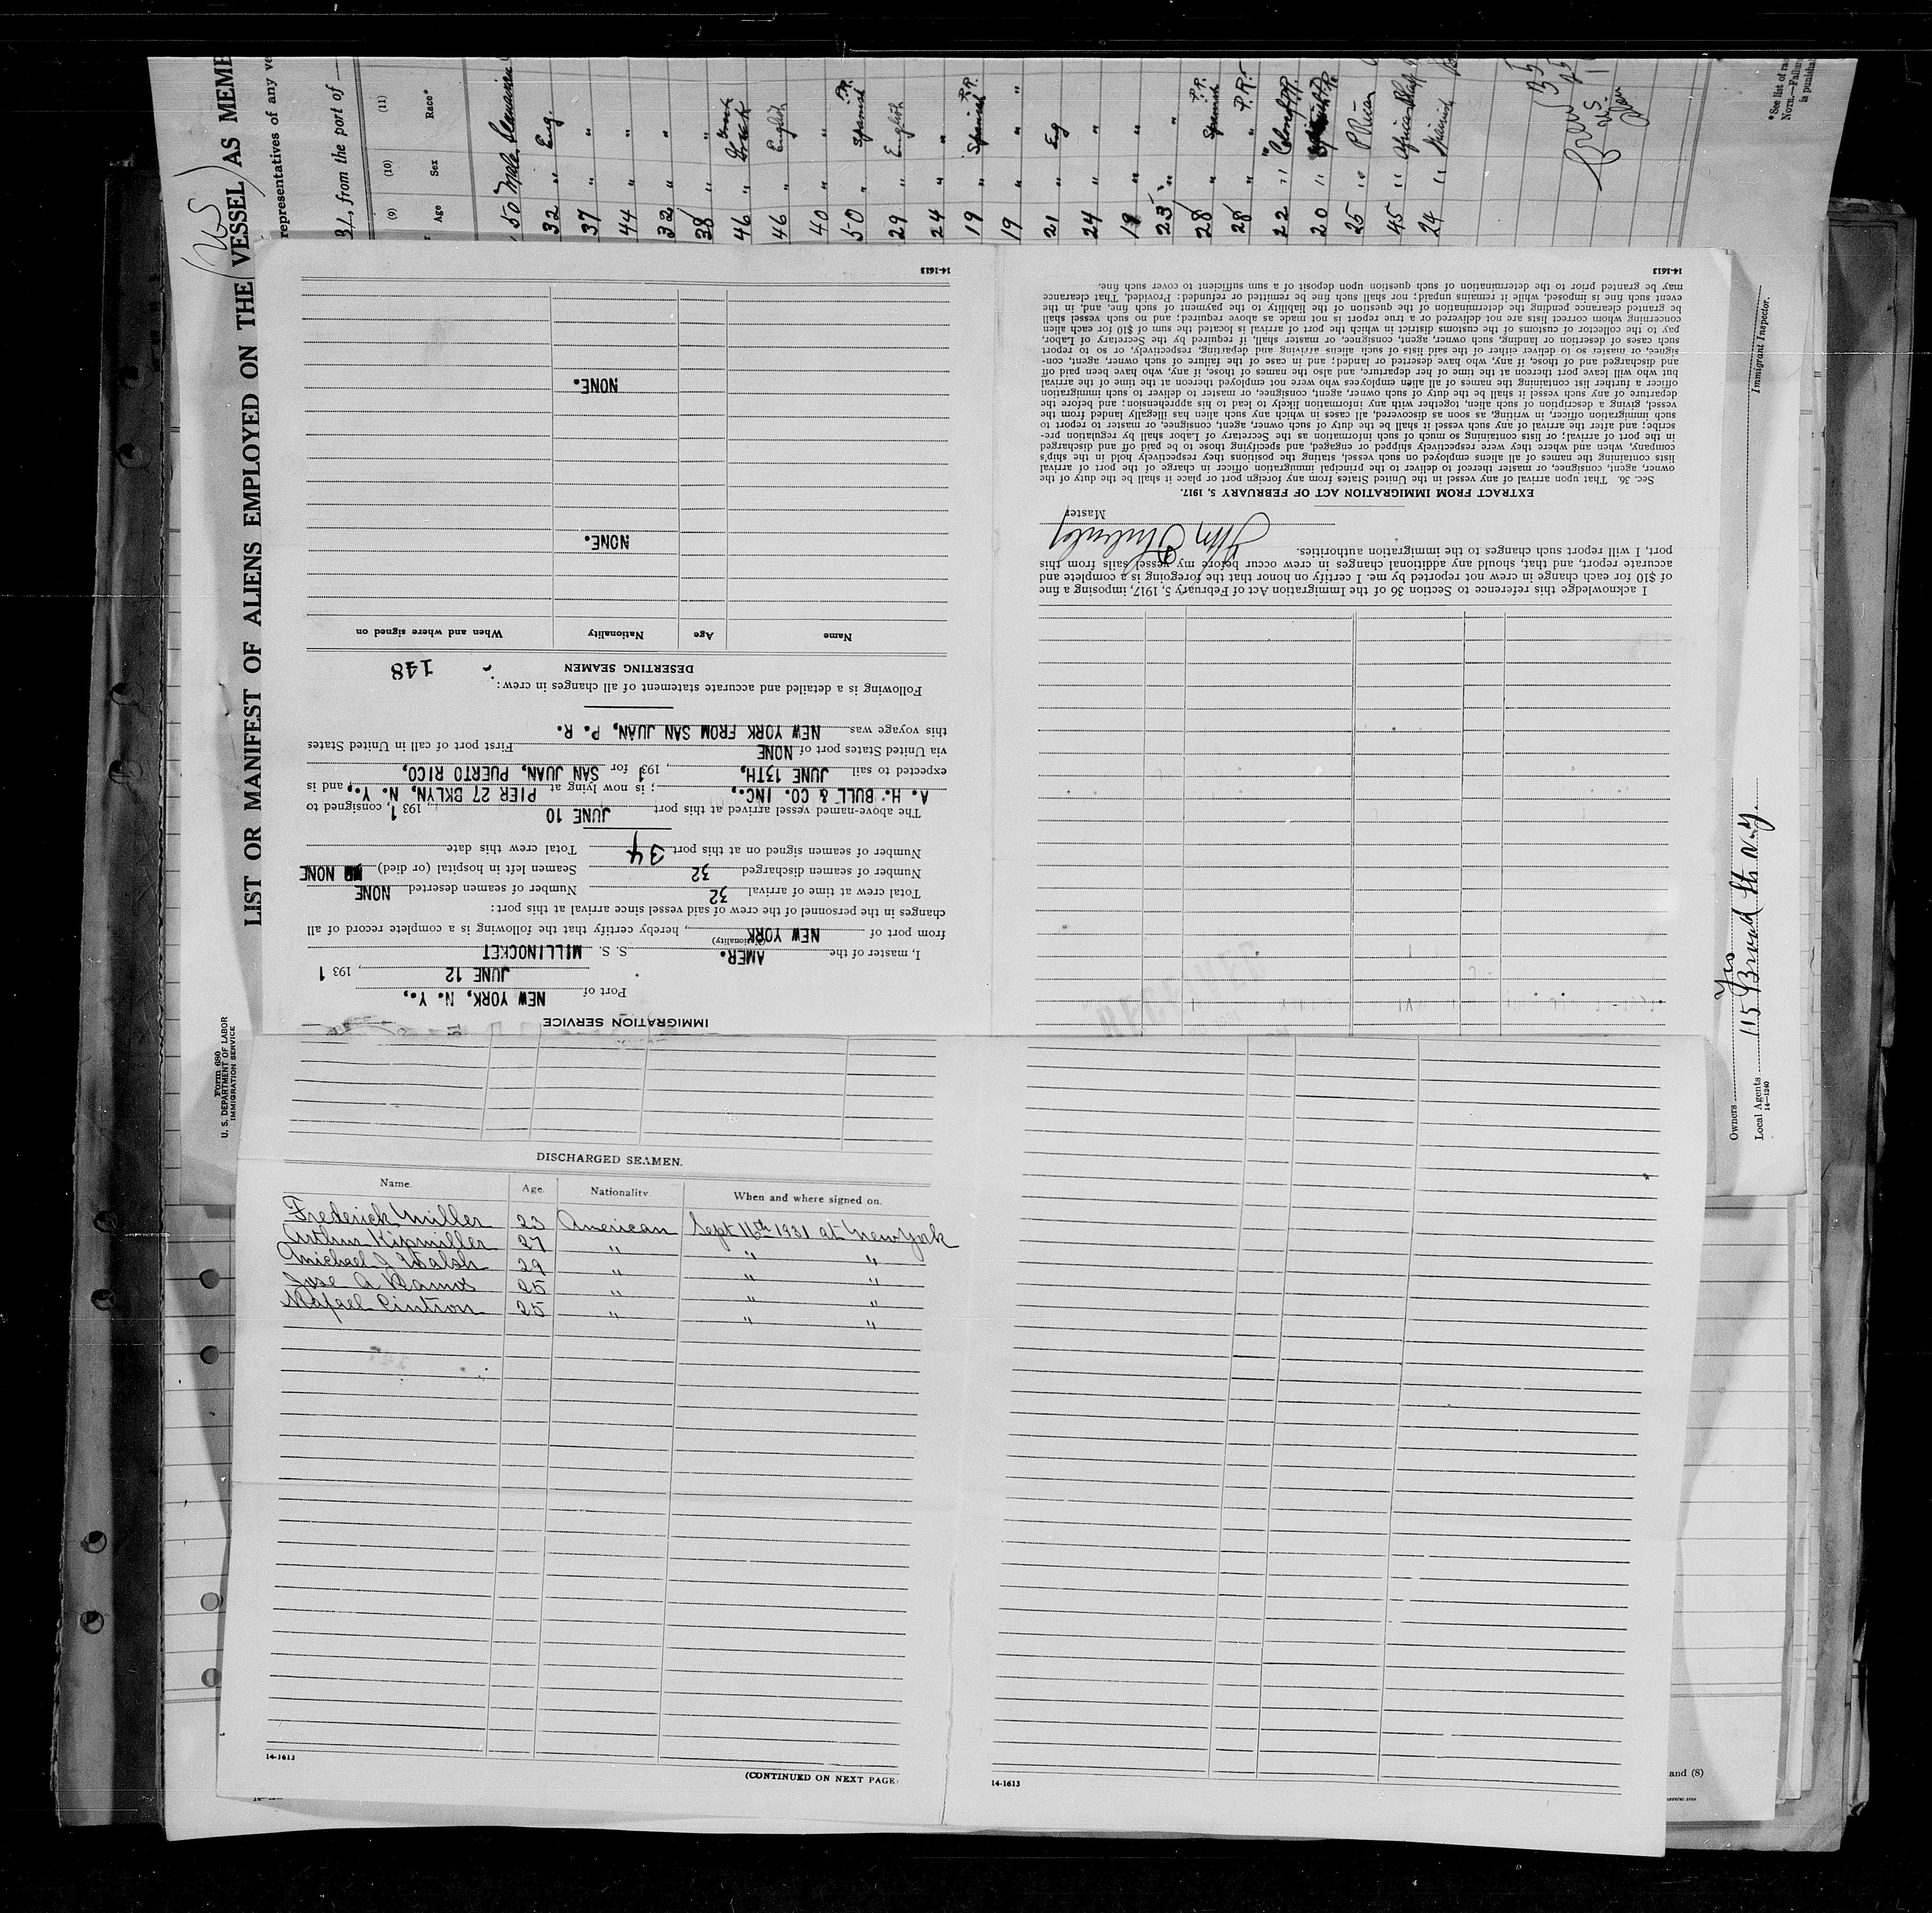 LIST OR MANIFEST OF ALIENS EMPLOYED ON THE VESSEL AS MEME
(US)
representatives of any ve
31, from the port of
(9) (10) (11)
Age Sex Race*
50 Male
32 " Eng.
37 " "
44 " "
32 " "
38 " "
46 "
46 " English
40 " "
50 " Spanish P.R.
29 " English
24 " "
19 " Spanish P.R.
19 " " "
21 " Eng
24 " "
18 " "
23 " "
28 " Spanish P.R.
28 " " P.R.
22 "
20 "
25 "
45 "
24 " Spanish
*See list of rac
NOTE.—Failur
is punishal
Immigrant Inspector.
Owners
Yes
Local Agents 115 Broad St. N.Y.
14-1240
Form 680
U. S. DEPARTMENT OF LABOR
IMMIGRATION SERVICE
IMMIGRATION SERVICE
Port of NEW YORK, N. Y.,
JUNE 12, 1931
I, master of the AMER. S. S. MILLINOCKET
(Nationality)
from port of NEW YORK, hereby certify that the following is a complete record of all
changes in the personnel of the crew of said vessel since arrival at this port:
Total crew at time of arrival 32 Number of seamen deserted NONE
Number of seamen discharged 32 Seamen left in hospital (or died) NONE
Number of seamen signed on at this port 34 Total crew this date
The above-named vessel arrived at this port JUNE 10, 1931, consigned to
A. H. BULL & CO. INC.,; is now lying at PIER 27 BKLYN, N. Y., and is
expected to sail JUNE 13TH, 1931 for SAN JUAN, PUERTO RICO,
via United States port of NONE First port of call in United States
this voyage was NEW YORK FROM SAN JUAN, P. R.
Following is a detailed and accurate statement of all changes in crew:
DESERTING SEAMEN
148
Name Age Nationality When and where signed on
NONE.
NONE.
14-1613
I acknowledge this reference to Section 36 of the Immigration Act of February 5, 1917, imposing a fine
of $10 for each change in crew not reported by me. I certify on honor that the foregoing is a complete and
accurate report, and that, should any additional changes in crew occur before my vessel sails from this
port, I will report such changes to the immigration authorities.
Master
EXTRACT FROM IMMIGRATION ACT OF FEBRUARY 5, 1917.
Sec. 36. That upon arrival of any vessel in the United States from any foreign port or place it shall be the duty of the
owner, agent, consignee, or master thereof to deliver to the principal immigration officer in charge of the port of arrival
lists containing the names of all aliens employed on such vessel, stating the positions they respectively hold in the ship's
company, when and where they were respectively shipped or engaged, and specifying those to be paid off and discharged
in the port of arrival; or lists containing so much of such information as the Secretary of Labor shall by regulation pre-
scribe; and after the arrival of any such vessel it shall be the duty of such owner, agent, consignee, or master to report to
such immigration officer, in writing, as soon as discovered, all cases in which any such alien has illegally landed from the
vessel, giving a description of such alien, together with any information likely to lead to his apprehension; and before the
departure of any such vessel it shall be the duty of such owner, agent, consignee, or master to deliver to such immigration
officer a further list containing the names of all alien employees who were not employed thereon at the time of the arrival
but who will leave port thereon at the time of her departure, and also the names of those, if any, who have been paid off
and discharged and of those, if any, who have deserted or landed; and in case of the failure of such owner, agent, con-
signee, or master so to deliver either of the said lists of such aliens arriving and departing, respectively, or so to report
such cases of desertion or landing, such owner, agent, consignee, or master shall, if required by the Secretary of Labor,
pay to the collector of customs of the customs district in which the port of arrival is located the sum of $10 for each alien
concerning whom correct lists are not delivered or a true report is not made as above required; and no such vessel shall
be granted clearance pending the determination of the question of the liability to the payment of such fine, and, in the
event such fine is imposed, while it remains unpaid; nor shall such fine be remitted or refunded: Provided, That clearance
may be granted prior to the determination of such question upon deposit of a sum sufficient to cover such fine.
14-1613
DISCHARGED SEAMEN.
Name. Age. Nationality. When and where signed on.
Frederick Miller 23 American Sept 16th 1931 at New York
Arthur Kipmiller 27 " " "
Michael J Walsh 29 " " "
Jose A Ramos 25 " " "
Rafael Cintron 25 " " "
14-1613
(CONTINUED ON NEXT PAGE)
14-1613
and (8)